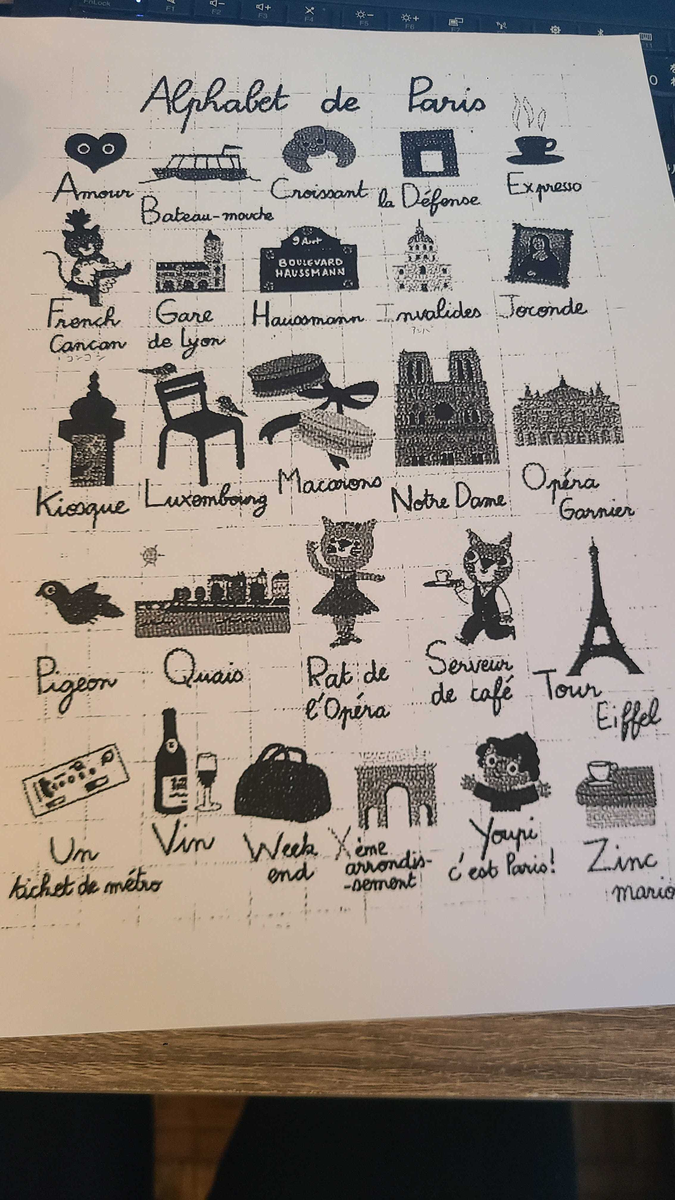 Alphabet de Paris
Amour
Bateau-mouche
Croissant
la Défense
Expresso
French
Cancan
Gare
de Lyon
9 Arrt
BOULEVARD
HAUSSMANN
Haussmann
Invalides
Joconde
Kiosque
Luxembourg
Macarons
Notre Dame
Opéra
Garnier
Pigeon
Quais
Rat de
l'Opéra
Serveur
de café
Tour
Eiffel
Un
ticket de métro
Vin
Week
end
Xème
arrondis-
-sement
Youpi
c'est Paris!
Zinc